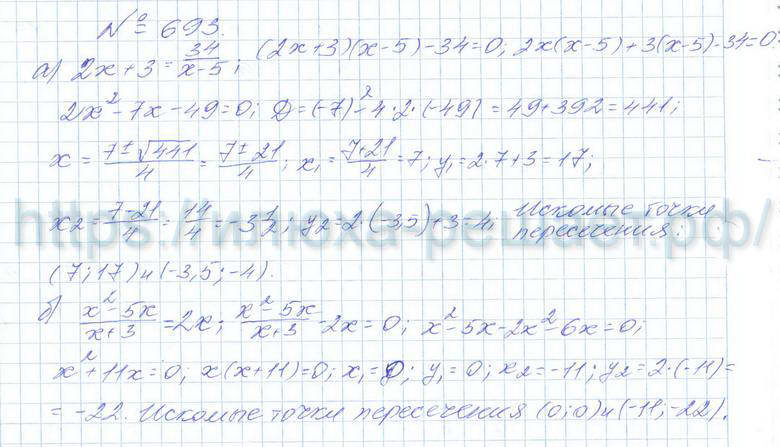 № 693.
а) 2x+3 = 34/(x-5); (2x+3)(x-5)-34=0; 2x(x-5)+3(x-5)-34=0
2x²-7x-49=0; D=(-7)²-4·2·(-49)=49+392=441;
x = (7±√441)/4 = (7±21)/4; x₁ = (7+21)/4 = 7; y₁=2·7+3=17;
x₂ = (7-21)/4 = 14/4 = -3 1/2; y₂=2·(-3,5)+3=-4; Искомые точки
пересечения:
https://илюха-решает.рф/
(7;17) и (-3,5;-4).
б) (x²-5x)/(x+3) = 2x; (x²-5x)/(x+3) - 2x=0; x²-5x-2x²-6x=0;
x²+11x=0; x(x+11)=0; x₁=0; y₁=0; x₂=-11; y₂=2·(-11)=
= -22. Искомые точки пересечения (0;0) и (-11;-22).